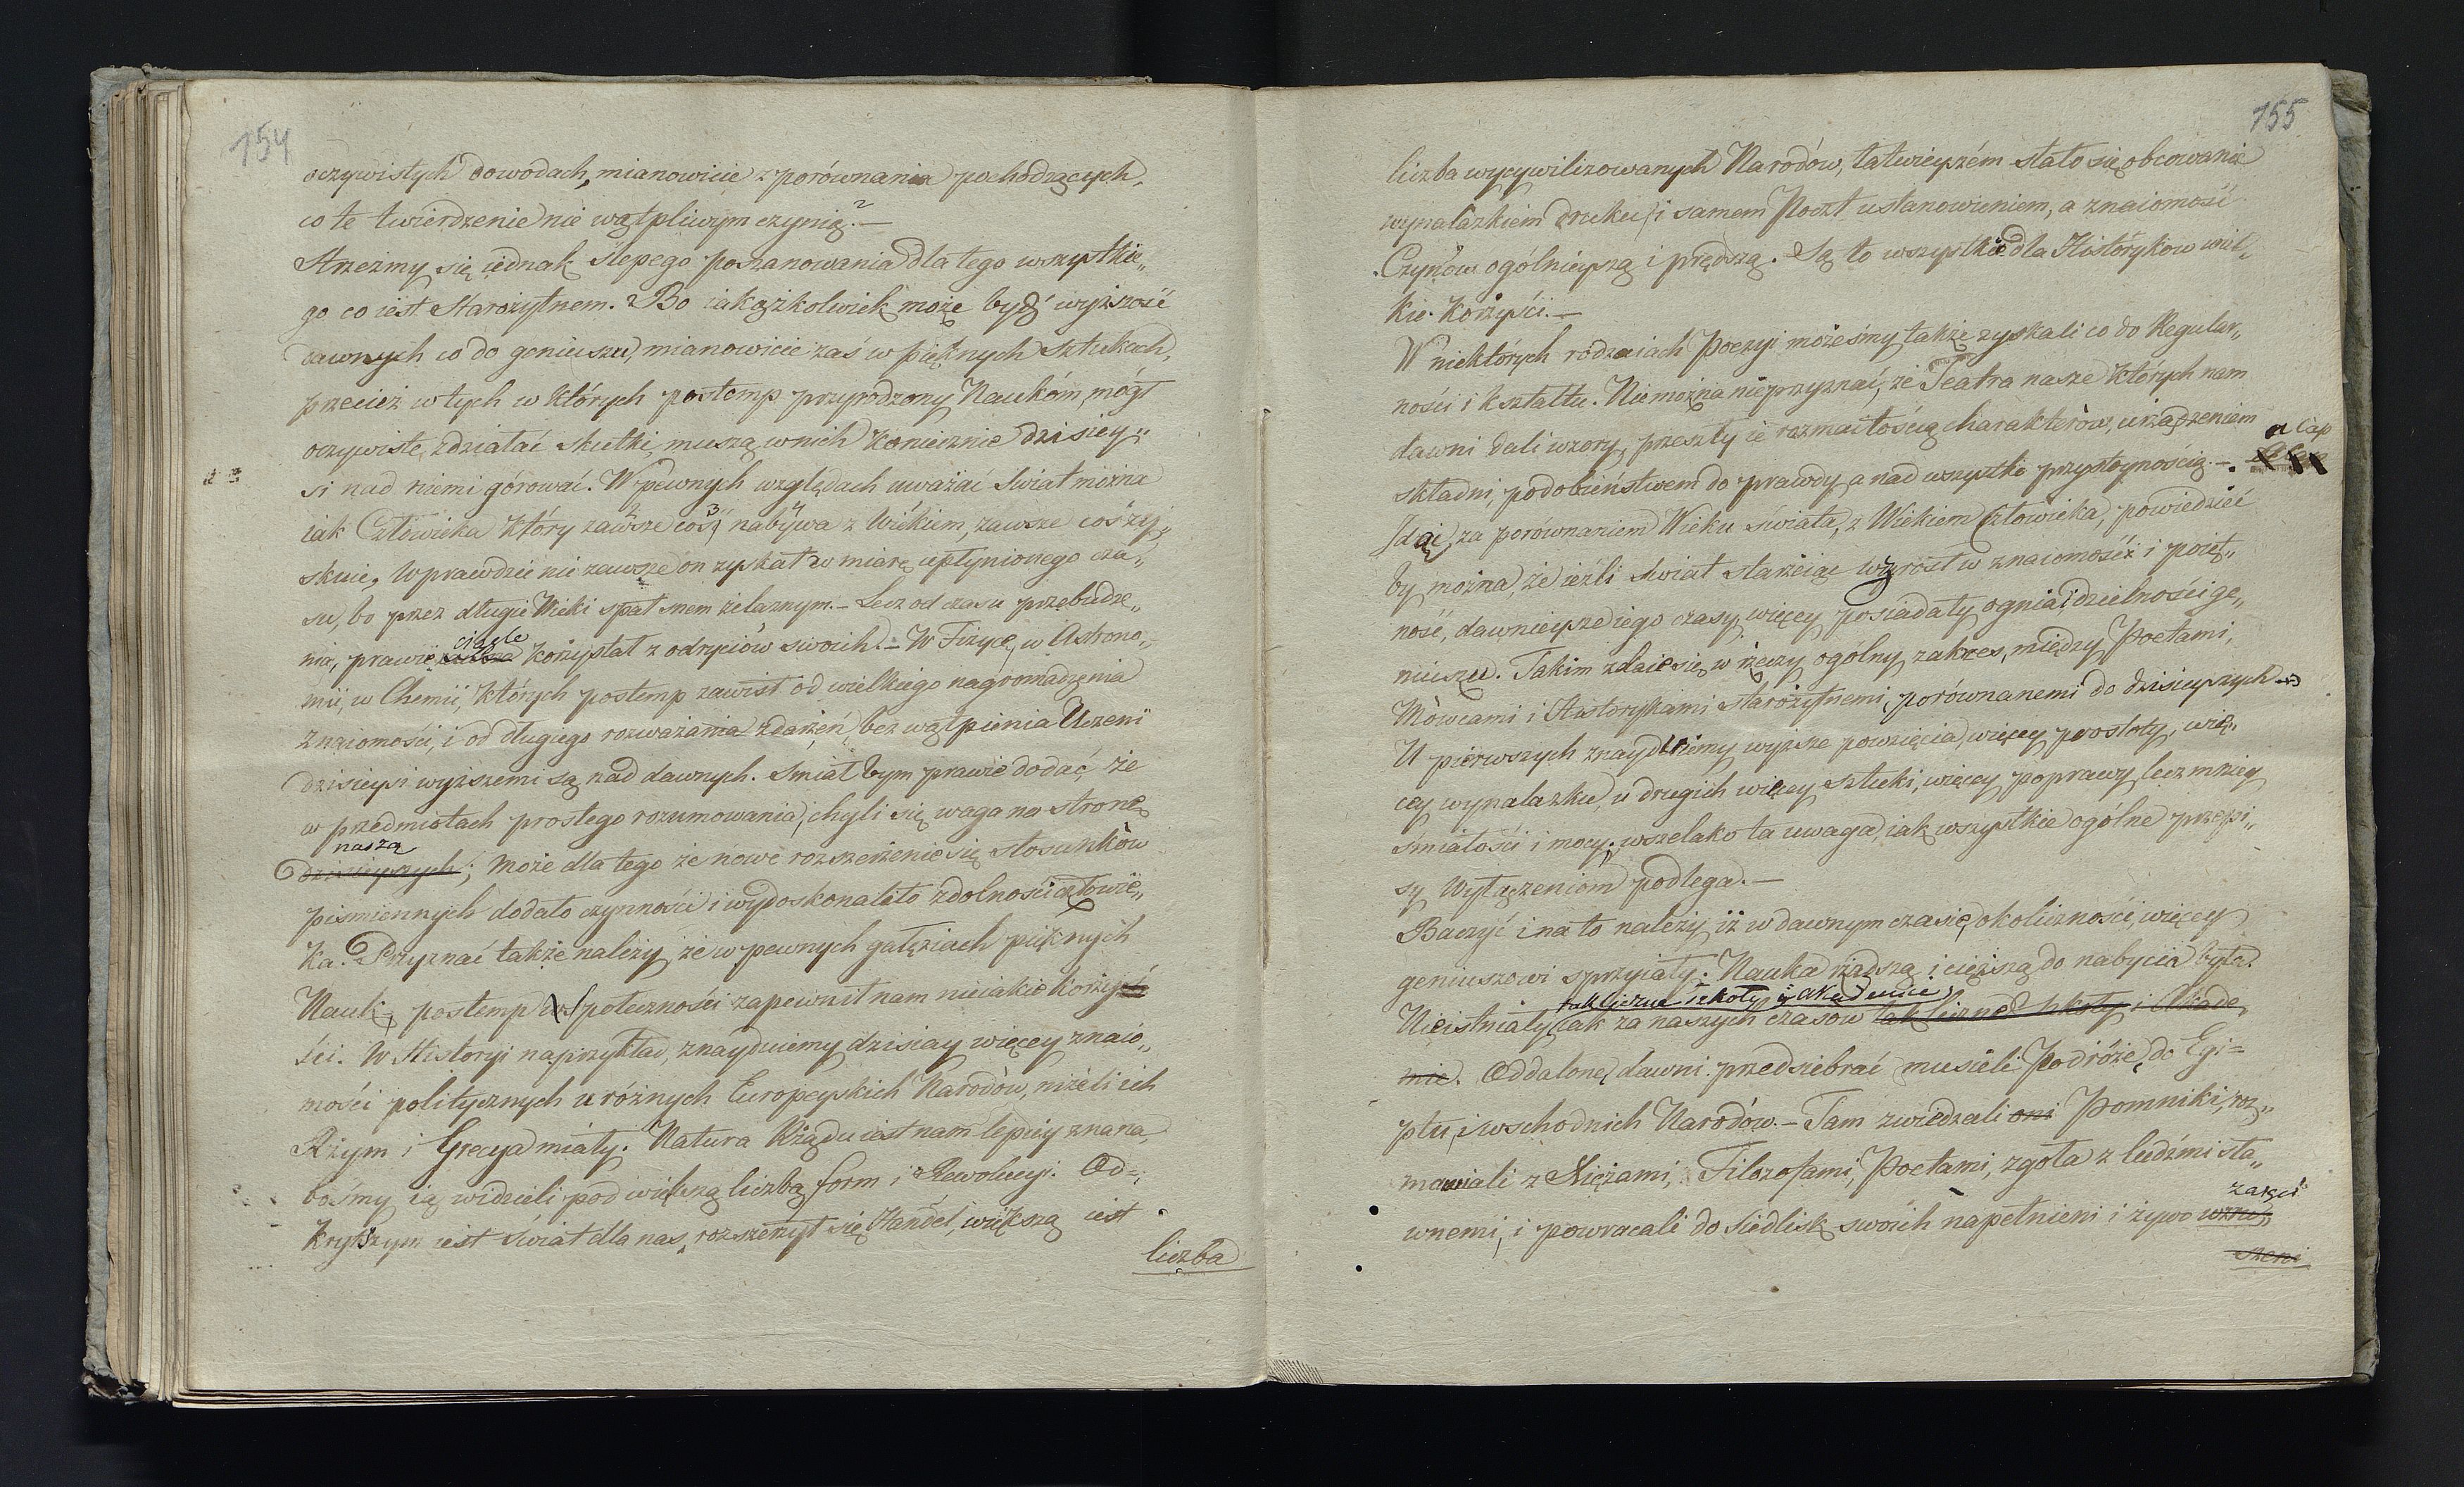 154
oczywistych dowodach, mianowicie z porównania pochodzących,
co te twierdzenie nie wątpliwym czynią?—
Strzeżmy się iednak ślepego poszanowania dla tego wszystkie„
go co iest Starożytnem. Bo iakążkolwiek może bydź wyższość
dawnych co do geniuszu, mianowicie zaś w pięknych sztukach,
przecież w tych w których postemp przyrodzony Nauków, mógł
oczywiste zdziałać skutki, muszą w nich koniecznie dzisiey„
si nad niemi górować. W pewnych względach uważać Świat można
iak Człowieka który zawsze coś nabywa z Wiekiem, zawsze coś zy„
skuie, W prawdzie nie zawsze on zyskał w miarę upłynionego cza„
su, bo przez długie Wieki spał snem żelaznym.— Lecz od czasu przebudze„
ciągle
nia, prawie korzystał z odryciów swoich.— W Fizyce, w Astrono„
mii, w Chemii, których postemp zawisł od wielkiego nagromadzenia
Znaiomości, i od długiego rozważania zdarzeń, bez wątpienia Uczeni
dzisieysi wyższemi są nad dawnych. Smiał bym prawie dodać, że
w przedmiotach prostego rozumowania, chyli się waga na stronę
naszą
dzisieyszych; Może dla tego że nowe rozszerzenie się stosunków
pismiennych dodało czynności i wydoskonaliło zdolności człowie„
ka. Przyznać także należy że w pewnych gałęziach pięknych
Nauk, postemp społeczności zapewnił nam nieiakie korzy
ści. W Historyi naprzykład, znayduiemy dzisiay więcey znaio„
mości politycznych u różnych Europeyskich Narodów, niżeli ich
Rzym i Grecya miały. Natura Rządu iest nam lepiey znana,
bośmy ią widzieli pod większą liczbą form i Rewolucyi. Od=
krytszym iest świat dla nas, rozszerzył się Handel, większą iest
liczba
155
liczba wycywilizowanych Narodów, łatwieyszém stało się obcowanie
wynalazkiem druku, i samem Poczt ustanowieniem, a znaiomość
Czynów ogólnieyszą i prędszą. Są to wszystkie dla Historyków wiel„
kie korzyści.—
W niektórych rodzaiach Poezyi możeśmy także zyskali co do Regular„
ności i kształtu. Nie można nieprzyznać, że Teatra nasze których nam
dawni dali wzory, przeszły ie rozmaitością charakterów, urządzeniem
a Cap
składni, podobieństwem do prawdy, a nad wszystko przystoynością.—
Idąc za porównaniem Wieku świata, z Wiekiem Człowieka, powiedzieć
by można, że ieżli świat starzeiąc wzrost w znaiomości i poięt„
ność, dawnieysze iego czasy więcey posiadały ognia i dzielności ge„
niuszu. Takim zdaie się w rzeczy ogólny zakres, między Poetami,
Mówcami i Historykami starożytnemi, porównanemi do dzisieyszych
U pierwszych znayduiemy wyższe powzięcia, więcey prostoty, wię„
cey wynalazku, u drugich więcey sztuki, więcey poprawy lecz mniey
śmiałości i mocy; wszelako ta uwaga, iak wszystkie ogólne przepi„
sy Wyłączeniom podlega.—
Baczyć i na to należy, iż w dawnym czasie, okoliczności, więcey
geniuszowi sprzyiały. Nauka rzadszą i cięższą do nabycia była.
tak liczne szkoły i akademie
Nieistniały iak za naszych czasów tak liczne szkoły i Akade„
mie. Oddalone dawni przedsiebrać musieli Podróże, do Egi=
ptu, i wschodnich Narodów.— Tam zwiedzali oni Pomniki, roz„
mawiali z Xiężami, Filozofami, Poetami, zgoła z ludźmi sła„
zaięci
wnemi, i powracali do siedlisk swoich napełnieni i żywo wzru„
szeni